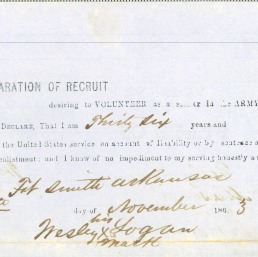 ARATION OF RECRUIT
desiring to VOLUNTEER as a in the ARMY
DECLARE, That I am Thirty Six years and
the United States service on account of disability or by sentence
enlistment; and I know of no impediment to my serving honestly
Fort Smith Arkansas
day of November 186 3
his
Wesley x Logan
mark